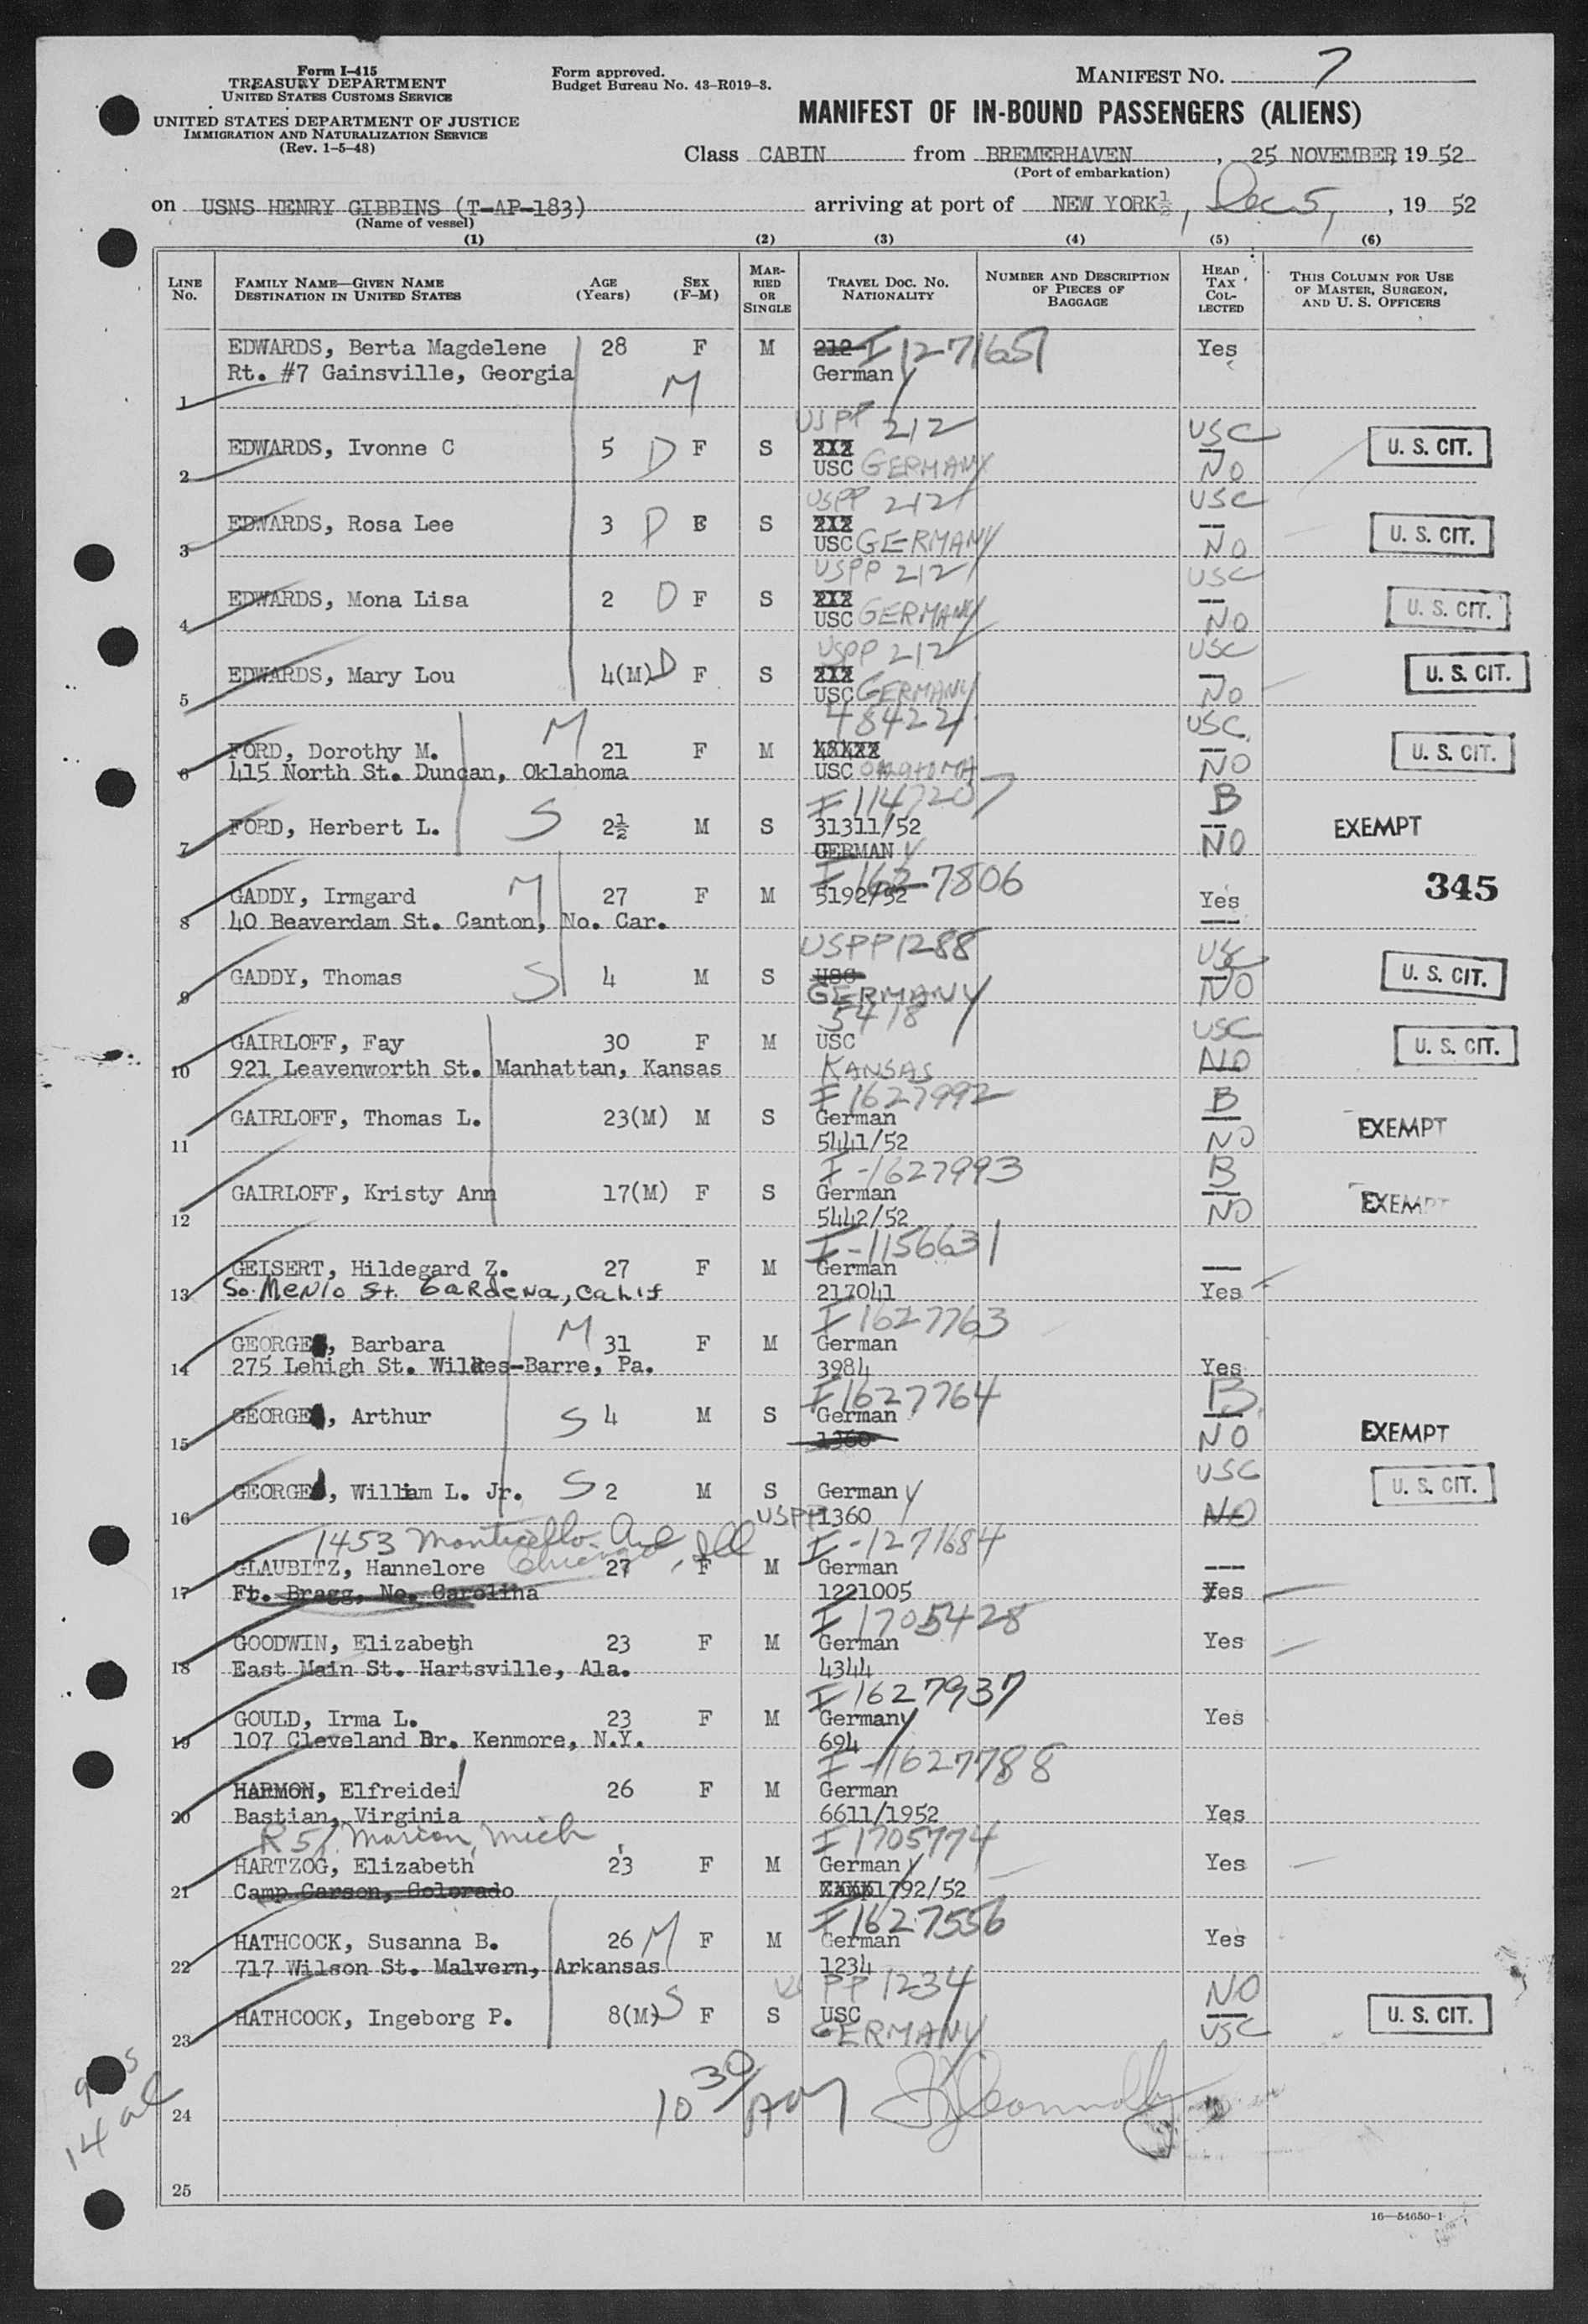 Form I-415
TREASURY DEPARTMENT
UNITED STATES CUSTOMS SERVICE
UNITED STATES DEPARTMENT OF JUSTICE
IMMIGRATION AND NATURALIZATION SERVICE
(Rev. 1-5-48)
Form approved.
Budget Bureau No. 43-R019-3.
MANIFEST NO. 7
MANIFEST OF IN-BOUND PASSENGERS (ALIENS)
Class CABIN from BREMERHAVEN, 25 NOVEMBER, 19 52
(Port of embarkation)
on USNS HENRY GIBBINS (T-AP-183) arriving at port of NEW YORK, Dec 5, 19 52
(Name of vessel)
(1) (2) (3) (4) (5) (6)
LINE NO. FAMILY NAME—GIVEN NAME DESTINATION IN UNITED STATES AGE (Years) SEX (F-M) MARRIED OR SINGLE TRAVEL DOC. NO. NATIONALITY NUMBER AND DESCRIPTION OF PIECES OF BAGGAGE HEAD TAX COLLECTED THIS COLUMN FOR USE OF MASTER, SURGEON, AND U. S. OFFICERS
EDWARDS, Berta Magdelene 28 F M 212 I 1271651 Yes
Rt. #7 Gainsville, Georgia M Germany
1
USPP 212 USC
EDWARDS, Ivonne C 5 D F S 212 U. S. CIT.
2 USC GERMANY NO
USPP 212 USC
EDWARDS, Rosa Lee 3 D F S 212 U. S. CIT.
3 USC GERMANY NO
USPP 212 USC
EDWARDS, Mona Lisa 2 D F S 212 U. S. CIT.
4 USC GERMANY NO
USPP 212 USC
EDWARDS, Mary Lou 4(M) D F S 212 U. S. CIT.
5 USC GERMANY NO
M 48422 USC
FORD, Dorothy M. 21 F M U. S. CIT.
6 415 North St. Duncan, Oklahoma USC OKLAHOMA NO
I 1147207 B
FORD, Herbert L. S 2½ M S 31311/52 EXEMPT
7 GERMANY NO
I 1627806 345
GADDY, Irmgard M 27 F M 5192/52 Yes
8 40 Beaverdam St. Canton, No. Car.
USPP1288 USC
GADDY, Thomas S 4 M S USC U. S. CIT.
9 GERMANY NO
5418 USC
GAIRLOFF, Fay 30 F M USC U. S. CIT.
10 921 Leavenworth St. Manhattan, Kansas KANSAS NO
I 1627992 B
GAIRLOFF, Thomas L. 23(M) M S German EXEMPT
11 5441/52 NO
I-1627993 B
GAIRLOFF, Kristy Ann 17(M) F S German EXEMPT
12 5442/52 NO
I-1156631
GEISERT, Hildegard Z. 27 F M German
13 So. Menlo St. Gardena, Calif 217041 Yes
I 1627763
GEORGE, Barbara M 31 F M German
14 275 Lehigh St. Wilkes-Barre, Pa. 3984 Yes
I 1627764 B
GEORGE, Arthur S 4 M S German EXEMPT
15 1360 NO
USC
GEORGE, William L. Jr. S 2 M S Germany U. S. CIT.
16 USPP 1360 NO
1453 Monticello Ave Chicago, Ill I-1271684
GLAUBITZ, Hannelore 27 F M German
17 Ft. Bragg, No. Carolina 1221005 Yes
I 1705428
GOODWIN, Elizabeth 23 F M German Yes
18 East Main St. Hartsville, Ala. 4344
I 1627937
GOULD, Irma L. 23 F M Germany Yes
19 107 Cleveland Dr. Kenmore, N.Y. 694
I-1627788
HARMON, Elfreidei 26 F M German
20 Bastian, Virginia 6611/1952 Yes
R 5, Marion, Mich I 1705774
HARTZOG, Elizabeth 23 F M Germany Yes
21 Camp Carson, Colorado 1792/52
I 1627556
HATHCOCK, Susanna B. 26 M F M German Yes
22 717 Wilson St. Malvern, Arkansas 1234
US PP 1234 NO
HATHCOCK, Ingeborg P. 8(M) S F S USC U. S. CIT.
23 GERMANY USC
9 US
14 al
10 30/AM
24
25
16—54650-1